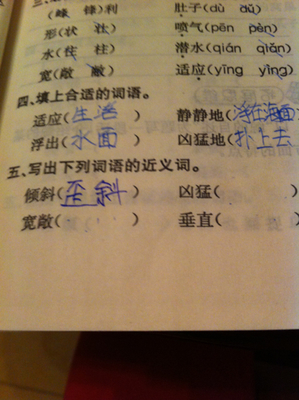 (峰 锋)利 肚子(dù dǔ)
形(状 壮) 喷气(pēn pèn)
水(住 柱) 潜水(qián qiǎn)
宽(敞 敝) 适应(yīng yìng)
四、填上合适的词语。
适应(生活) 静静地(浮在海面)
浮出(水面) 凶猛地(扑上去)
五、写出下列词语的近义词。
倾斜(歪斜) 凶猛(
宽敞( ) 垂直(